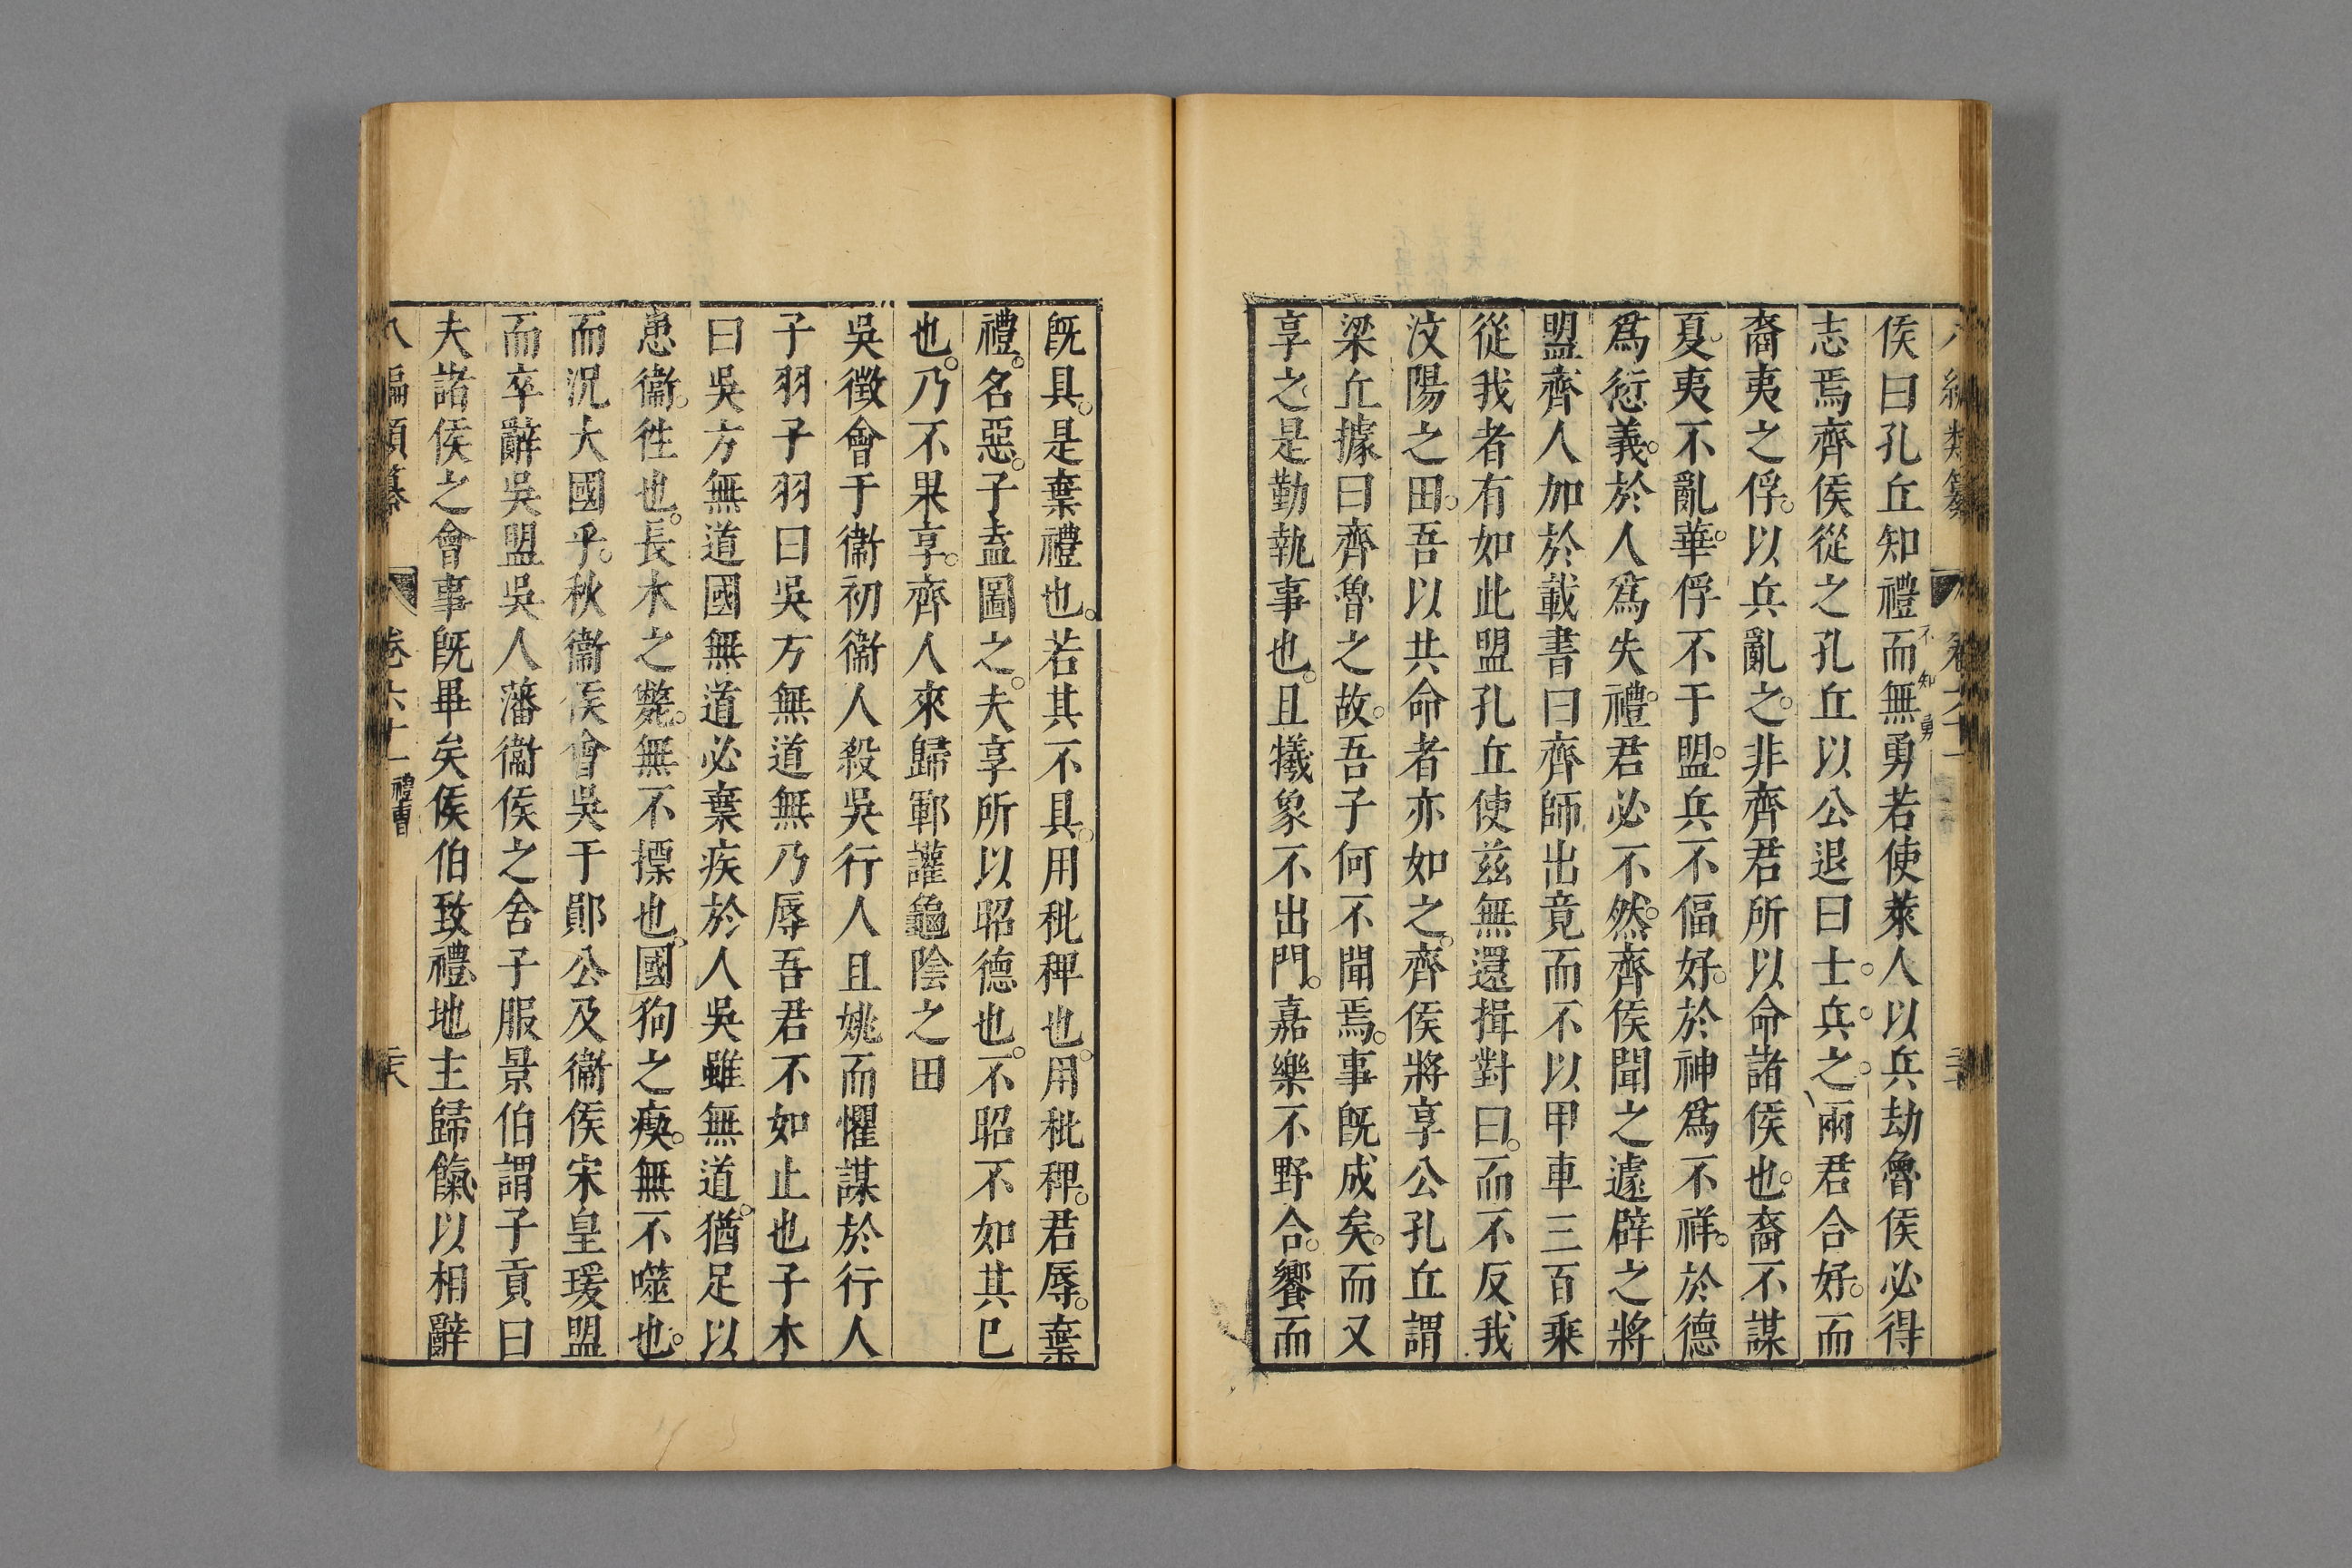 侯曰孔丘知禮而無勇若使萊人以兵劫魯侯必得
不知勇
志焉齊侯從之孔丘以公退曰士兵之兩君合好而
裔夷之俘以兵亂之非齊君所以命諸侯也裔不謀
夏夷不亂華俘不于盟兵不偪好於神爲不祥於德
爲愆義於人爲失禮君必不然齊侯聞之遽辟之將
盟齊人加於載書曰齊師出竟而不以甲車三百乘
從我者有如此盟孔丘使兹無還揖對曰而不反我
汶陽之田吾以共命者亦如之齊侯將享公孔丘謂
梁丘據曰齊魯之故吾子何不聞焉事旣成矣而又
享之是勤執事也且犧象不出門嘉樂不野合饗而
旣具是棄禮也若其不具用秕稗也用秕稗君辱棄
禮名惡子盍圖之夫享所以昭德也不昭不如其已
也乃不果享齊人來歸鄆讙龜陰之田
吳徵會于衞初衞人殺吳行人且姚而懼謀於行人
子羽子羽曰吳方無道無乃辱吾君不如止也子木
曰吳方無道國無道必棄疾於人吳雖無道猶足以
患衞徃也長木之斃無不摽也國狗之瘈無不噬也
而況大國乎秋衞侯會吳于鄖公及衞侯宋皇瑗盟
而卒辭吳盟吳人藩衞侯之舍子服景伯謂子貢曰
夫諸侯之會事旣畢矣侯伯致禮地主歸餼以相辭
八編類纂 卷六十一 禮曹